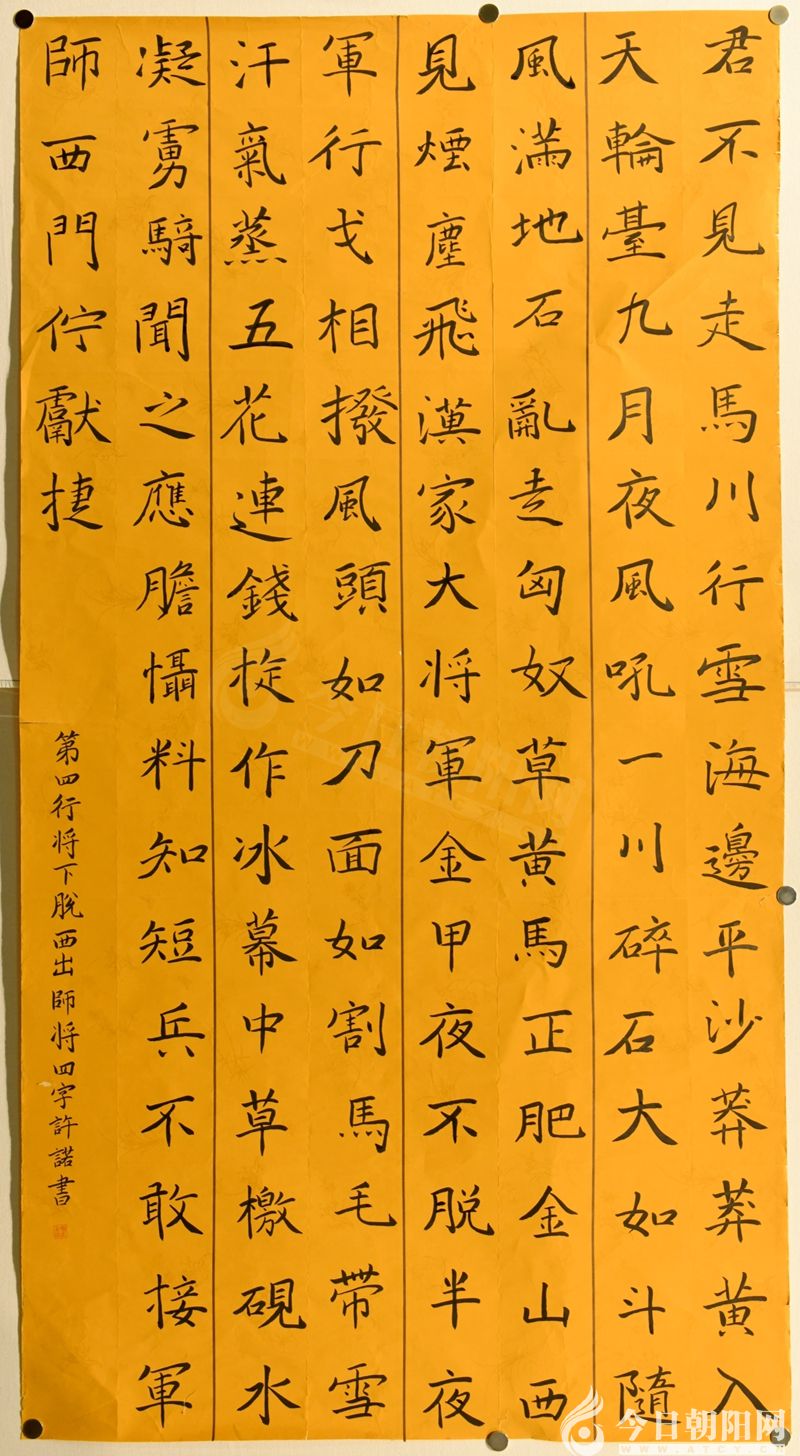 君不見走馬川行雪海邊平沙莽莽黄入
天輪臺九月夜風吼一川碎石大如斗隨
風滿地石亂走匈奴草黄馬正肥金山西
見煙塵飛漢家大将軍金甲夜不脱半夜
軍行戈相撥風頭如刀面如割馬毛帶雪
汗氣蒸五花連錢旋作冰幕中草檄硯水
凝虜騎聞之應膽懾料知短兵不敢接軍
師西門佇獻捷
第四行将下脱西出師将四字許諾書
今日朝阳网